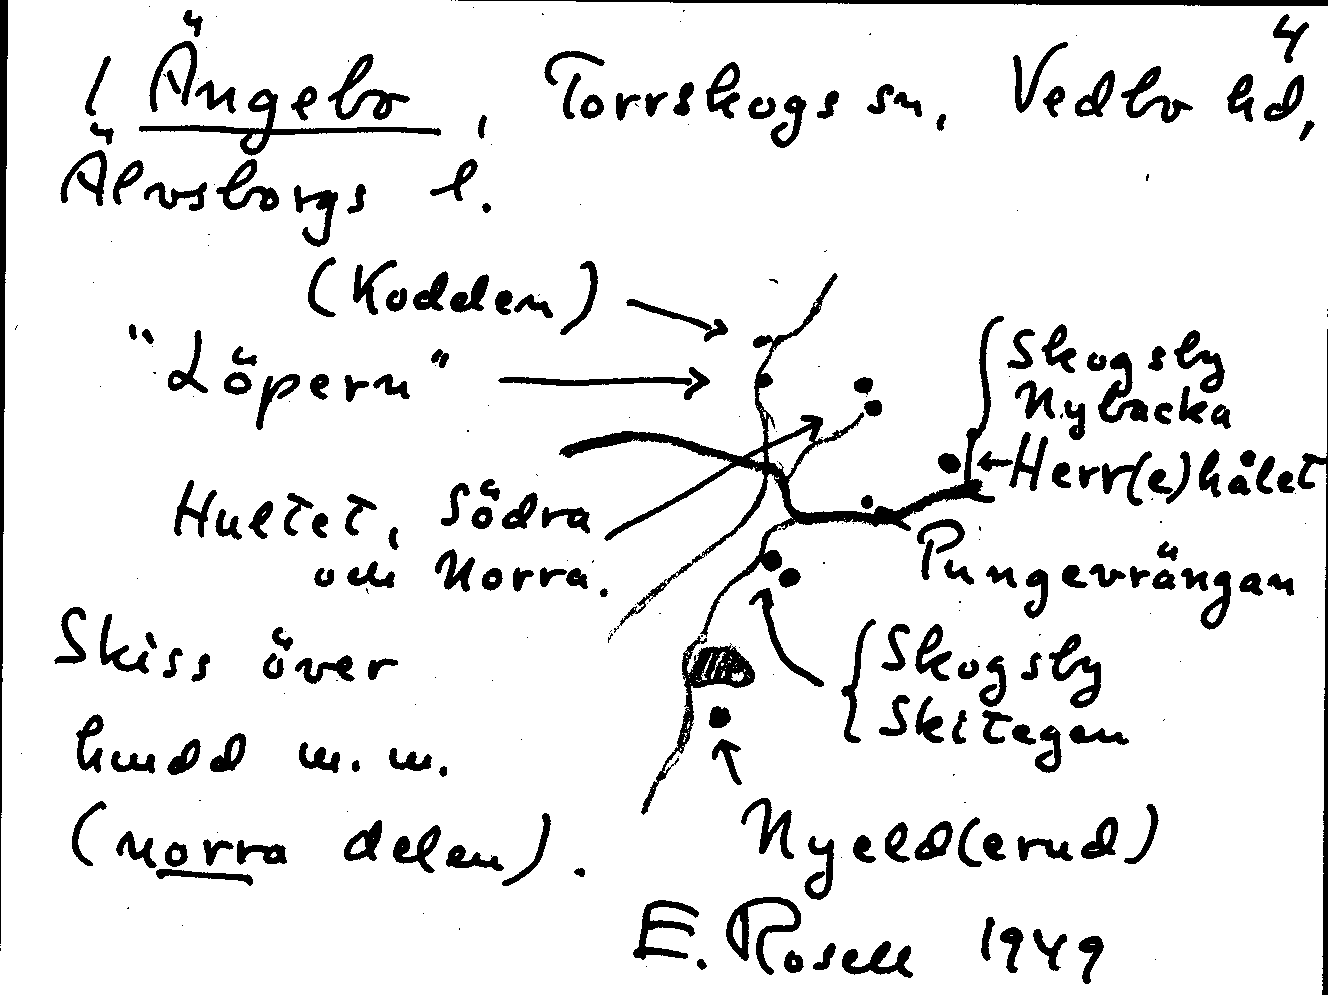 4
1 Ängebo, Torrskogs sn, Vedbo hd,
Älvsborgs l.
(Kodden)
"Löpern"
Skogsby
Nybacka
Herr(e)hålet
Hultet, Södra
och Norra.
Pungevrängan
Skiss över
Skogsby
Skitegen
hmdd m.m.
(norra delen).
Nyeld(erud)
E. Rosell 1949